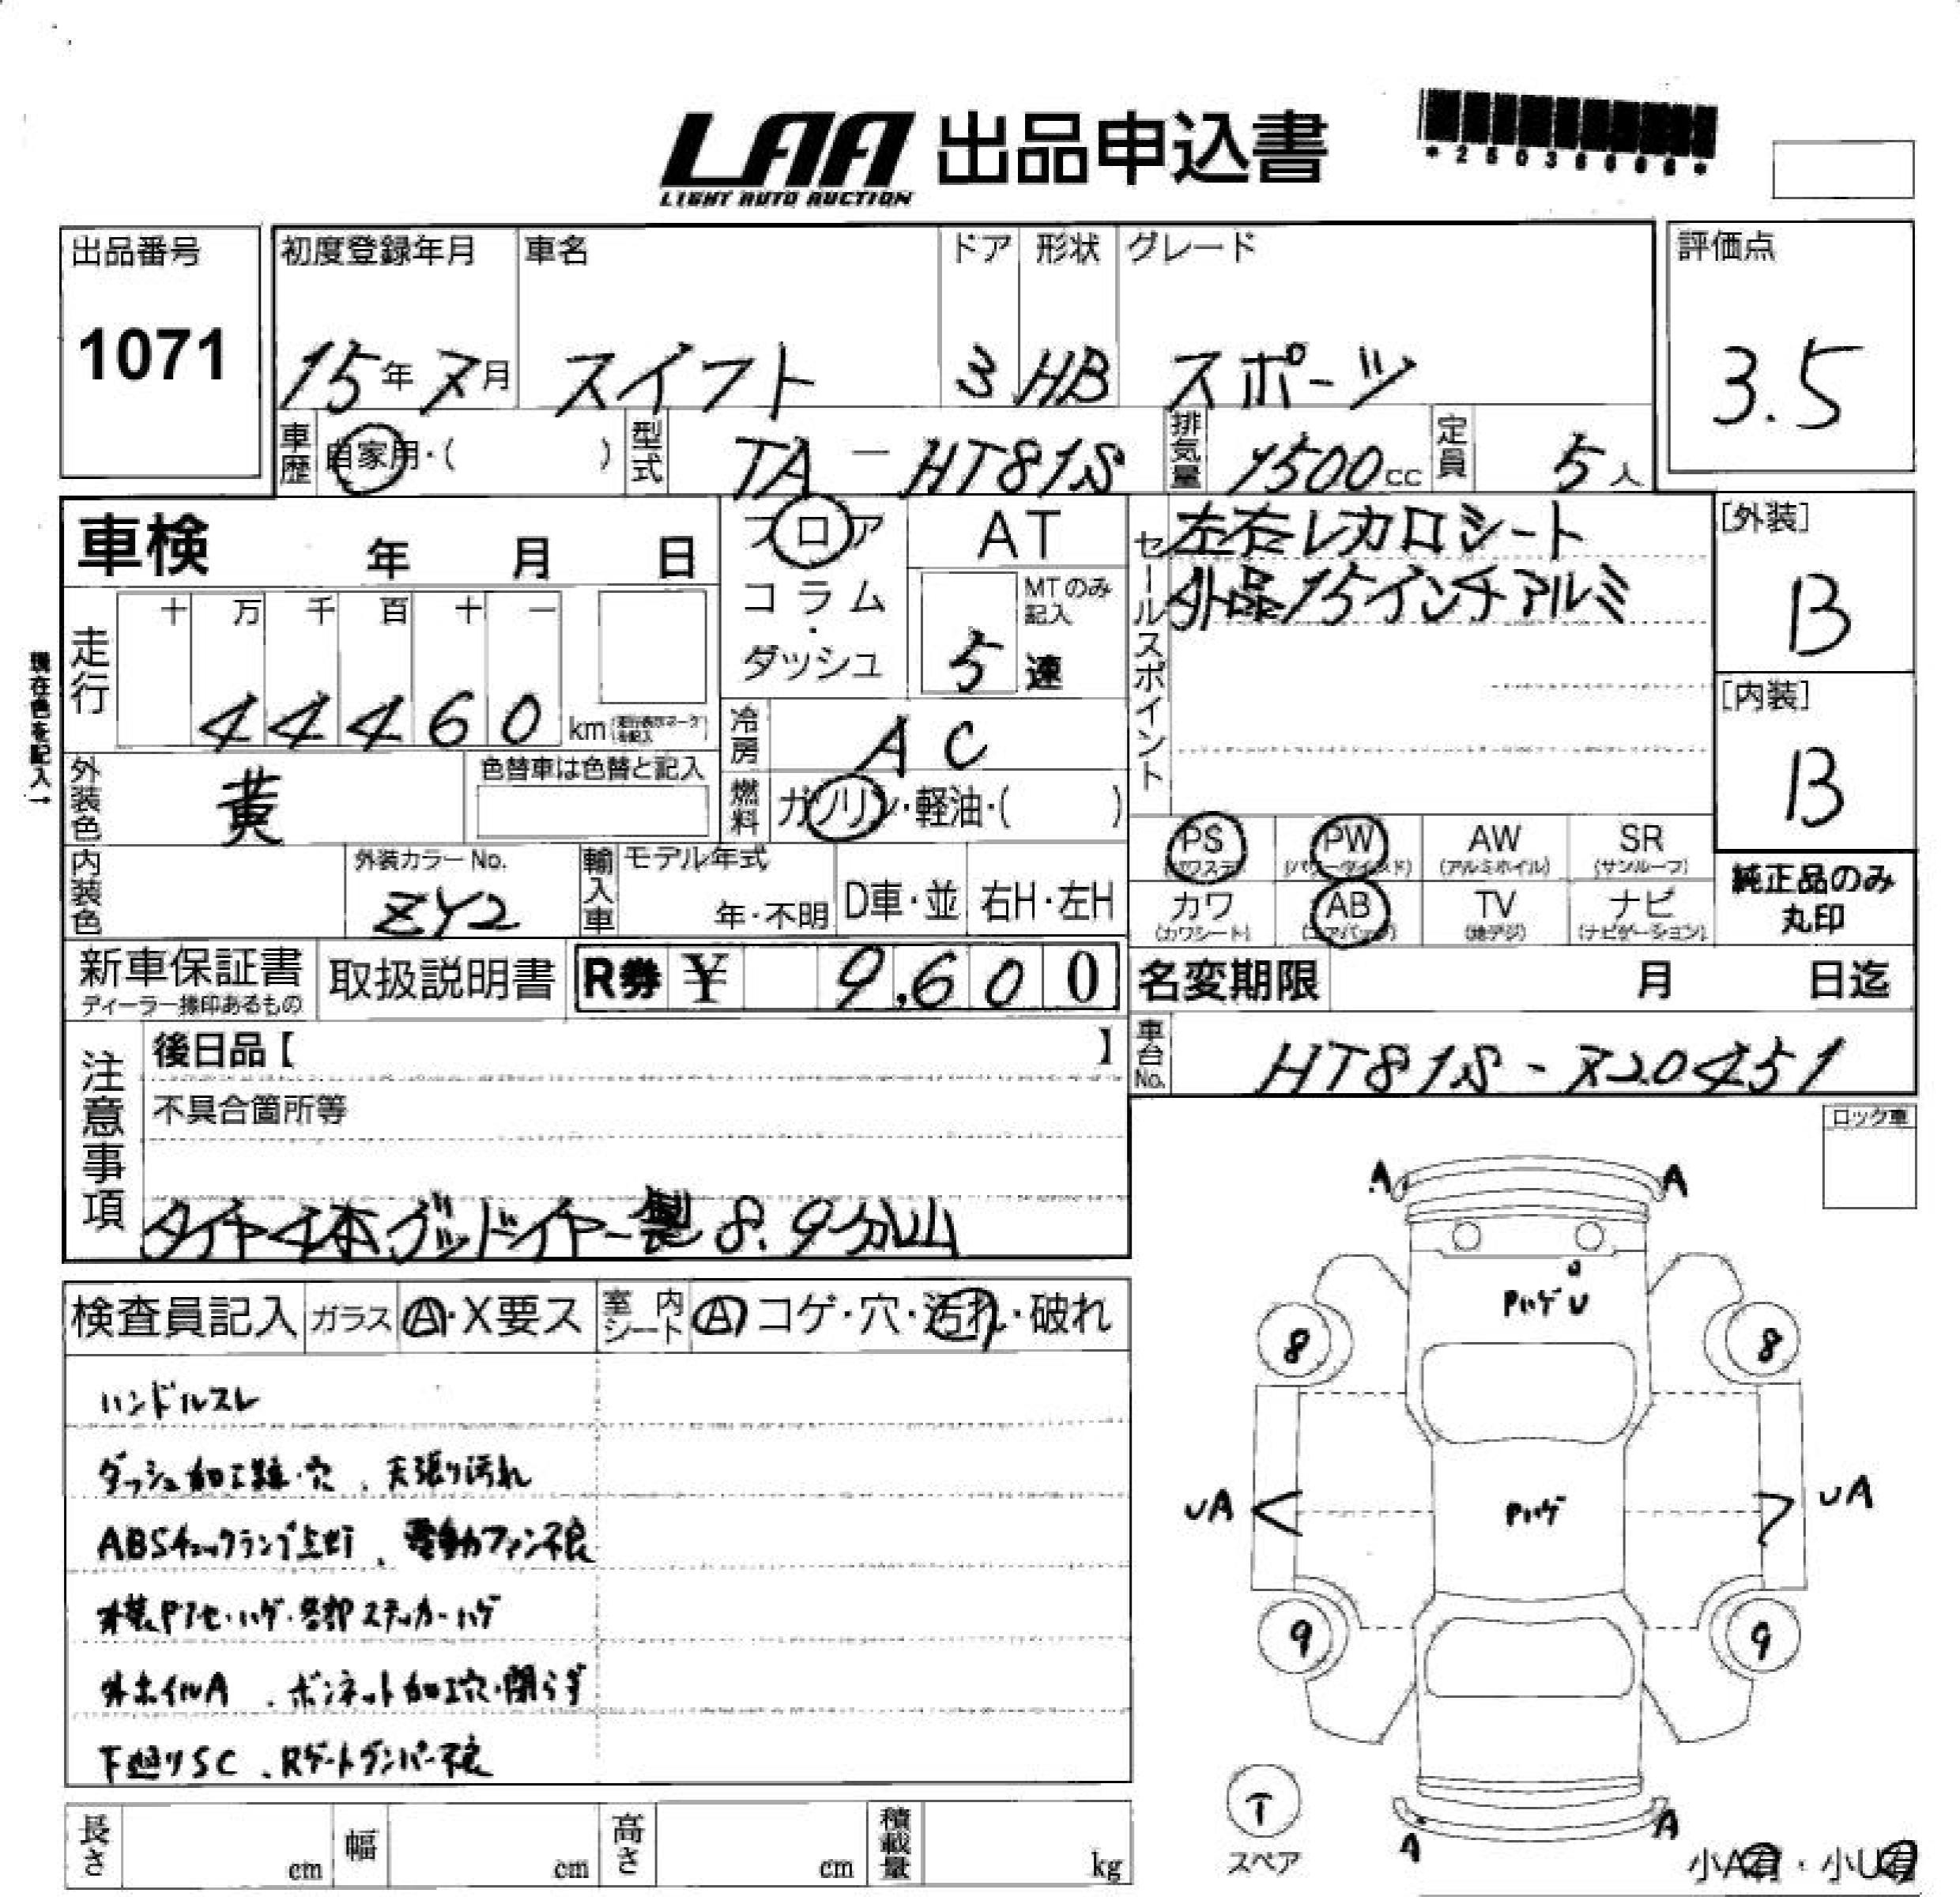 LAA 出品申込書
LIGHT AUTO AUCTION
出品番号
1071
初度登録年月 車名 ドア 形状 グレード
15年7月 スイフト 3 HB スポーツ
評価点
3.5
車歴 自家用・( ) 型式 TA-HT81S 排気量 1500cc 定員 5人
車検 年 月 日
フロア
コラム・ダッシュ
AT
MTのみ記入
5速
セールスポイント
左右レカロシート
外品15インチアルミ
[外装]
B
[内装]
B
現在色を記入→
走行 十 万 千 百 十 一
44460 km
冷房 AC
外装色 黄 色替車は色替と記入
燃料 ガソリン・軽油・( )
内装色 外装カラーNo. ZY2
輸入車 モデル年式 年・不明 D車・並 右H・左H
PS (パワステ) PW (パワーウインド) AW (アルミホイル) SR (サンルーフ)
カワ (カワシート) AB (エアバッグ) TV (地デジ) ナビ (ナビゲーション)
純正品のみ丸印
新車保証書 取扱説明書 R券 ¥ 9,600
ディーラー捺印あるもの
名変期限 月 日迄
車台No. HT81S-720451
注意事項
後日品【 】
不具合箇所等
タイヤ4本グッドイヤー製8.9分山
ロック車
検査員記入 ガラス A・X要ス 室内シート A コゲ・穴・汚れ・破れ
ハンドルスレ
ダッシュ加工跡・穴、天張り汚れ
ABSチェックランプ点灯、電動ファン不良
外装Pアセ・ハゲ・各部ステッカーハゲ
外ホイルA、ボンネット加工穴・閉らず
下廻りSC、Rゲートダンパー不良
A A
Pハゲ U
8 8
UA UA
Pハゲ
9 9
T
スペア
A A
小A有・小U有
長さ cm 幅 cm 高さ cm 積載量 kg